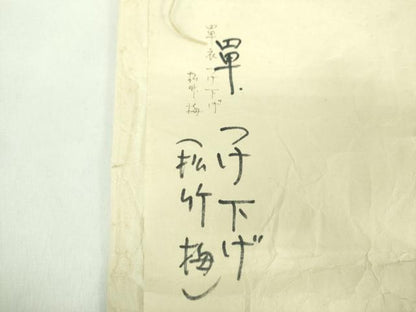 単.つけ下げ
(松竹梅)
単衣つけ下げ
松竹梅